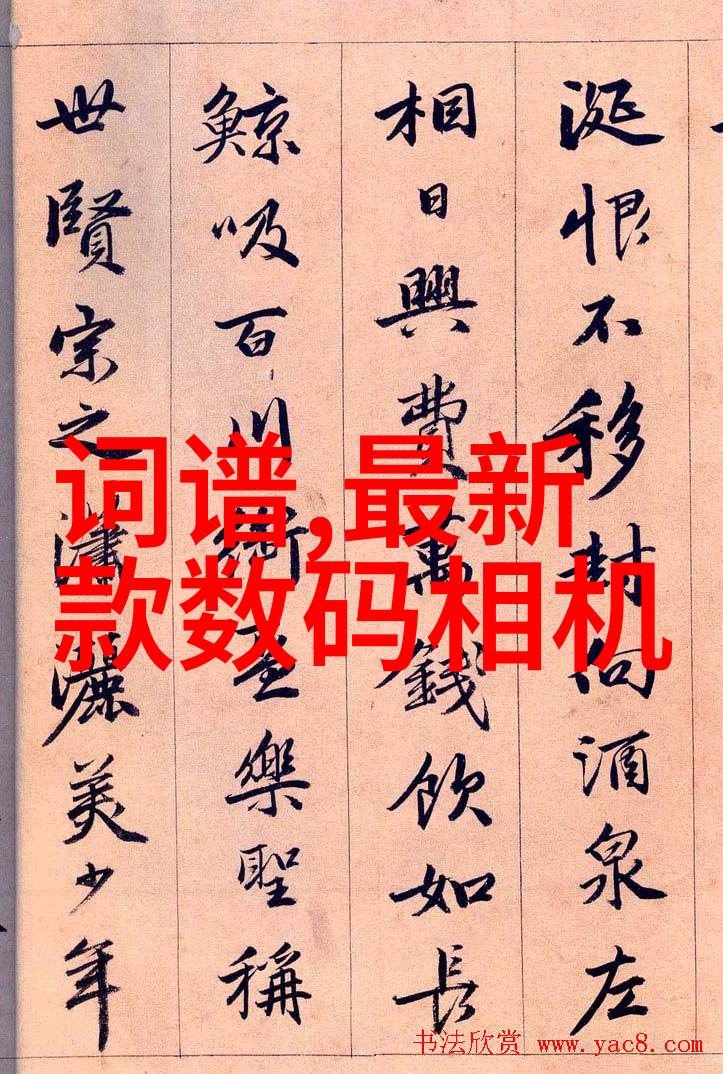 涎恨不移封向酒泉左
相日興費萬錢飲如長
鯨吸百川銜盃樂聖稱
世賢宗之瀟灑美少年
词谱,最新
款数码相机
书法欣赏 www.yac8.com